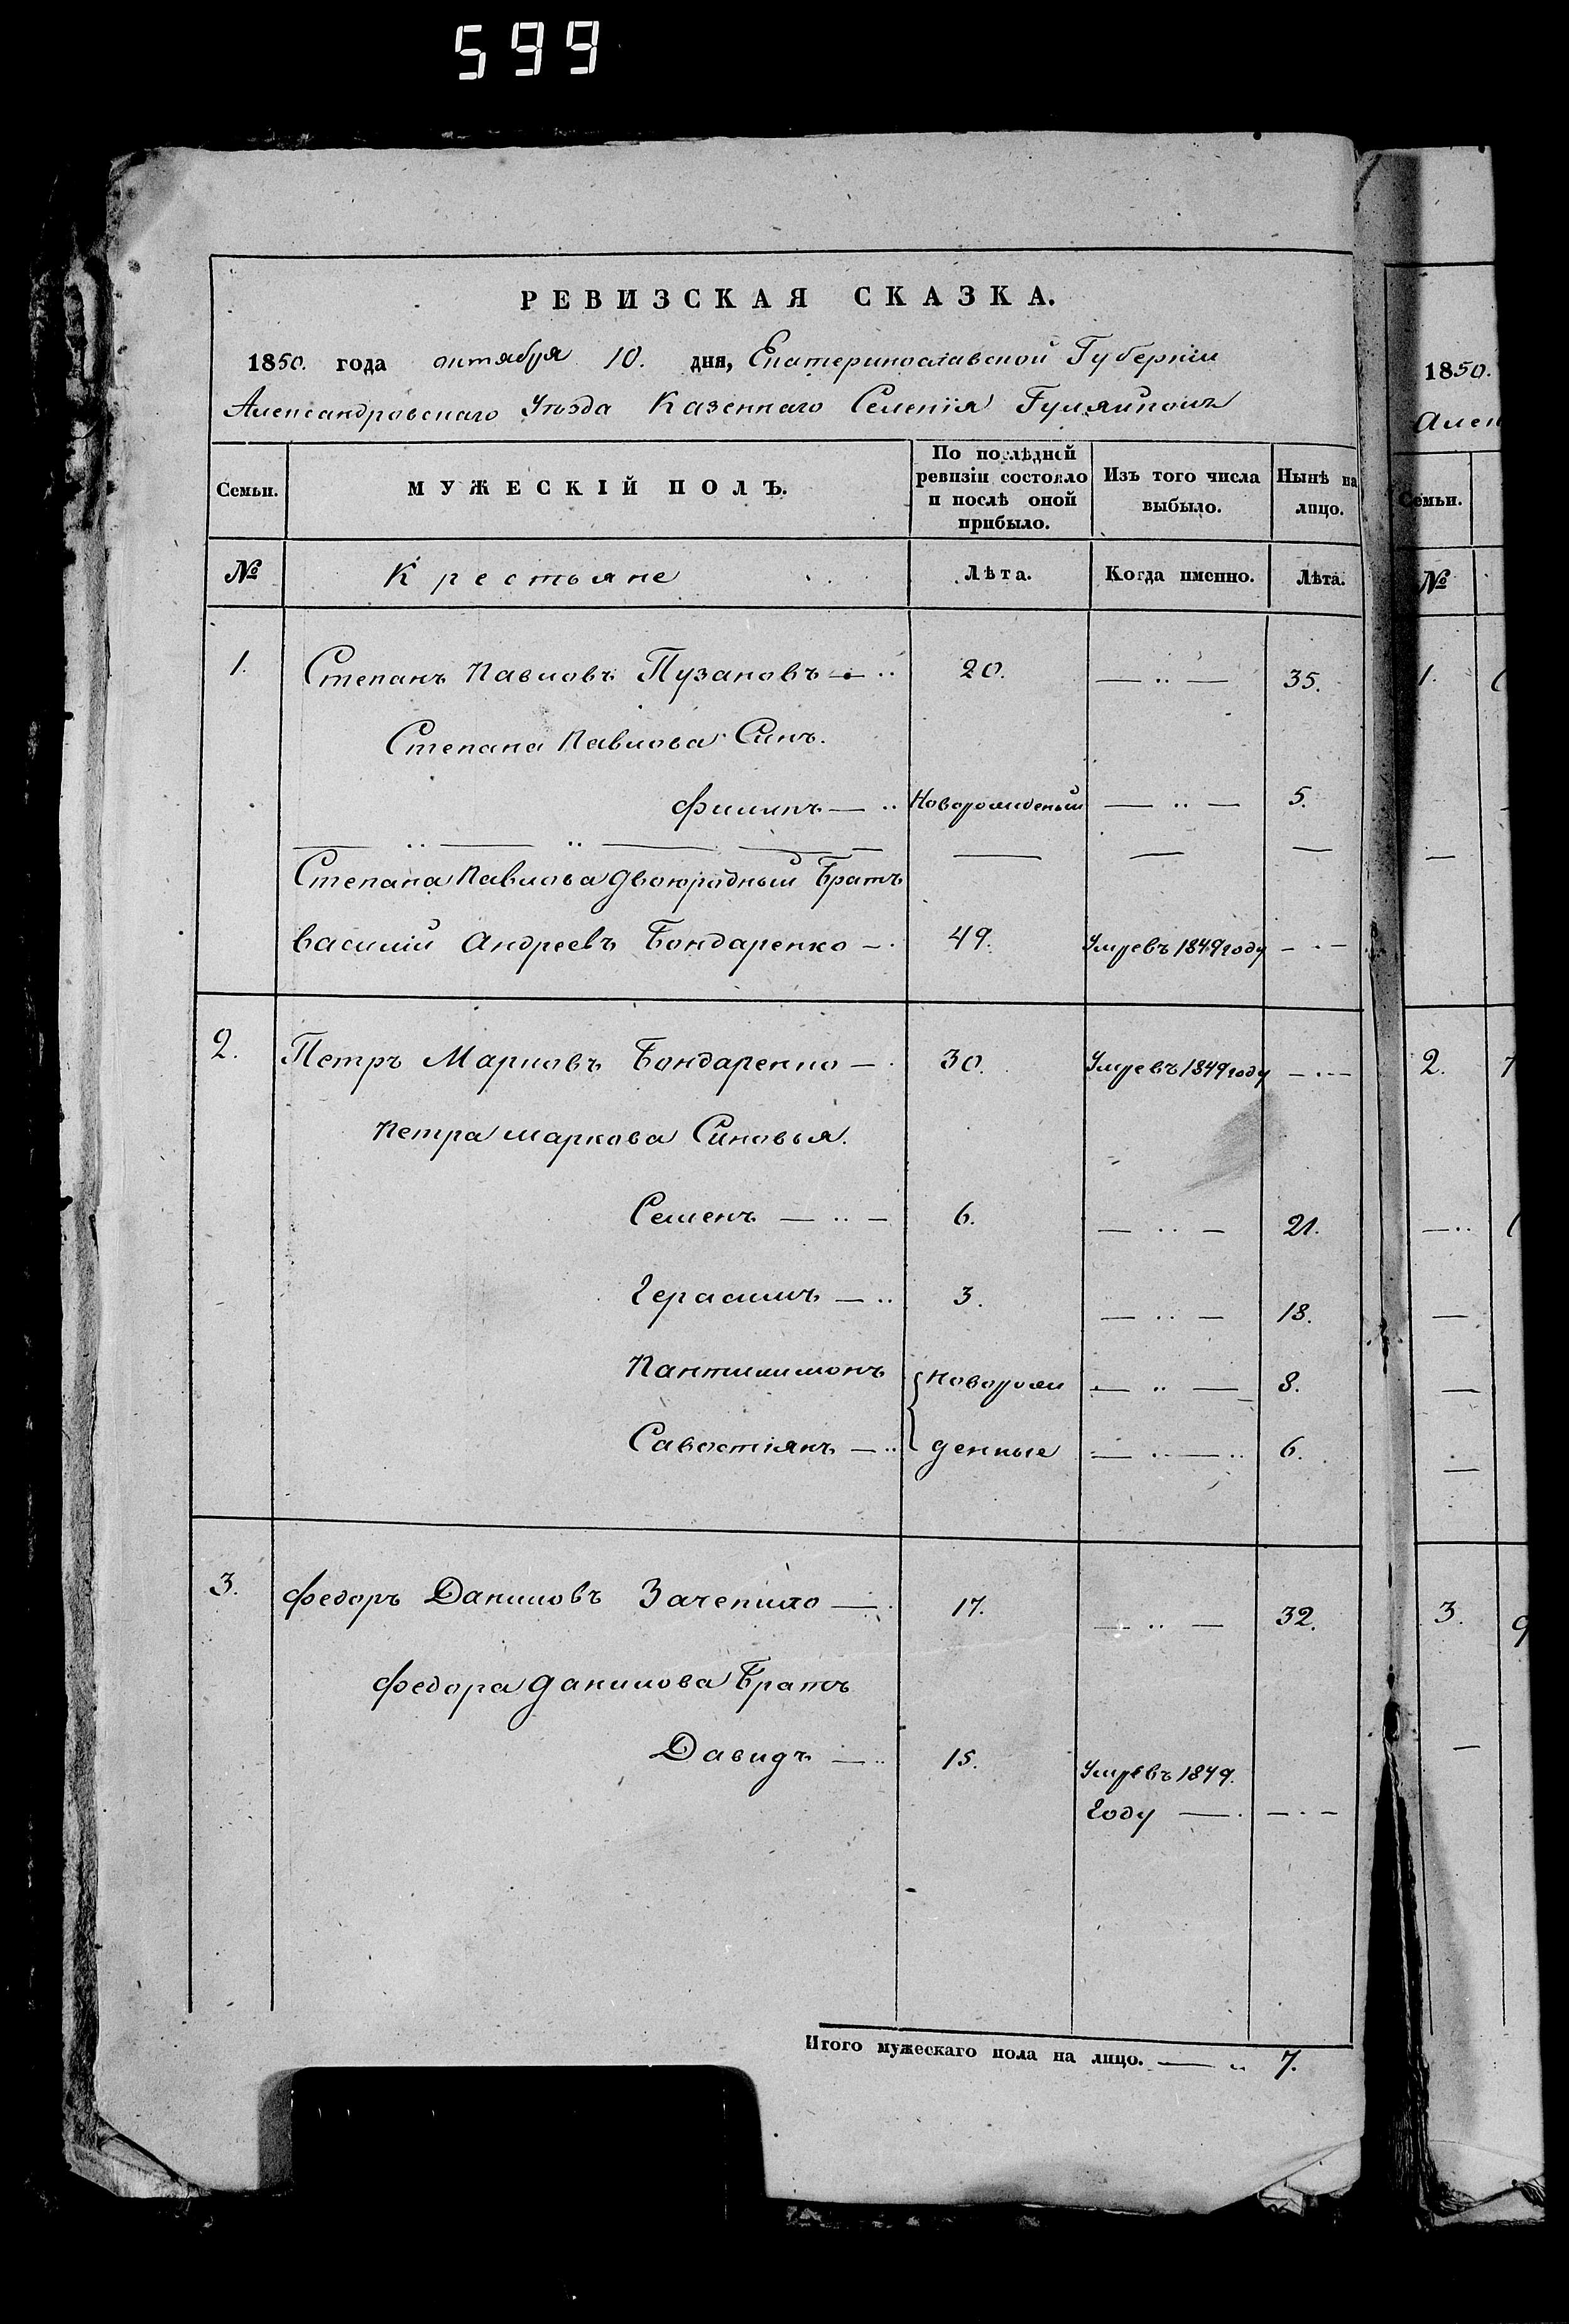 599
РЕВИЗСКАЯ СКАЗКА.
1850. года октября 10. дня, Екатеринославской Губернiи
Александровскаго Уѣзда Казеннаго Селенiя Гуляйполь
Семьи. МУЖЕСКІЙ ПОЛЪ. По послѣдней ревизіи состояло и послѣ оной прибыло. Изъ того числа выбыло. Нынѣ на лицо.
№ Крестьяне Лѣта. Когда именно. Лѣта.
1. Степанъ Павловъ Пузановъ — .. 20. — .. — 35.
Степана Павлова Синъ.
Филипъ — .. Новорожденый — .. — 5.
Степана Павлова двоюродный Братъ
Василій Андреевъ Бондаренко — . 49. Умре въ 1849 году — . —
2. Петръ Марковъ Бондаренко — . 30. Умре въ 1849 году — . —
Петра Маркова Синовья.
Семенъ — .. — 6. — .. — 21.
Герасимъ — .. 3. — .. — 18.
Пантилимонъ { Новорож — .. — 8.
Савостіянъ — .. денные — .. — .. 6.
3. Федоръ Даниловъ Зачепило — . 17. — .. — 32.
Федора Данилова Братъ
Давидъ — .. 15. Умре въ 1849.
Году — . — . —
Итого мужескаго пола на лицо. — .. 7.
1850.
Алек
Семьи.
№
1.
2.
3.